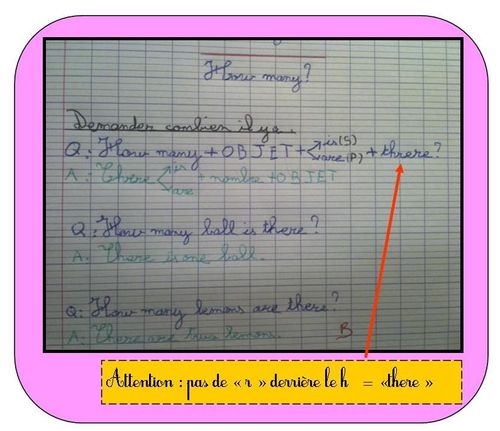 How many?
Demander combien il y a.
Q: How many + OBJET + is (S) are (P) + threre?
A: There is are + nombre + OBJET
Q: How many ball is there?
A: There is one ball.
Q: How many lemons are there?
A: There are two lemons.
B
Attention : pas de « r » derrière le h = «there »